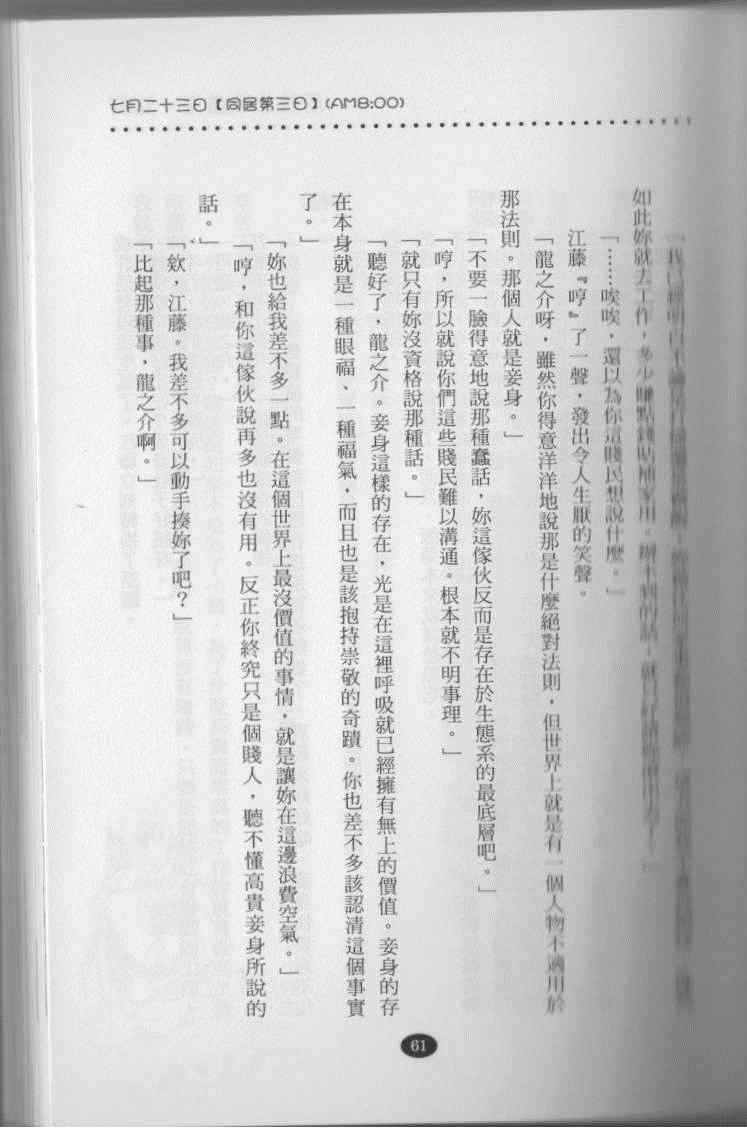 七月二十三日【同居第三日】(AM8:00)
「我已經明白不
如此妳就去工作，多少賺點錢貼補家用。辦不到的話，就
「……唉唉，還以為你這賤民想說什麼。」
江藤『哼』了一聲，發出令人生厭的笑聲。
「龍之介呀，雖然你得意洋洋地說那是什麼絕對法則，但世界上就是有一個人物不適用於
那法則。那個人就是妾身。」
「不要一臉得意地說那種蠢話，妳這傢伙反而是存在於生態系的最底層吧。」
「哼，所以就說你們這些賤民難以溝通。根本就不明事理。」
「就只有妳沒資格說那種話。」
「聽好了，龍之介。妾身這樣的存在，光是在這裡呼吸就已經擁有無上的價值。妾身的存
在本身就是一種眼福、一種福氣，而且也是該抱持崇敬的奇蹟。你也差不多該認清這個事實
了。」
「妳也給我差不多一點。在這個世界上最沒價值的事情，就是讓妳在這邊浪費空氣。」
「哼，和你這傢伙說再多也沒有用。反正你終究只是個賤人，聽不懂高貴妾身所說的
話。」
「欸，江藤。我差不多可以動手揍妳了吧？」
「比起那種事，龍之介啊。」
61